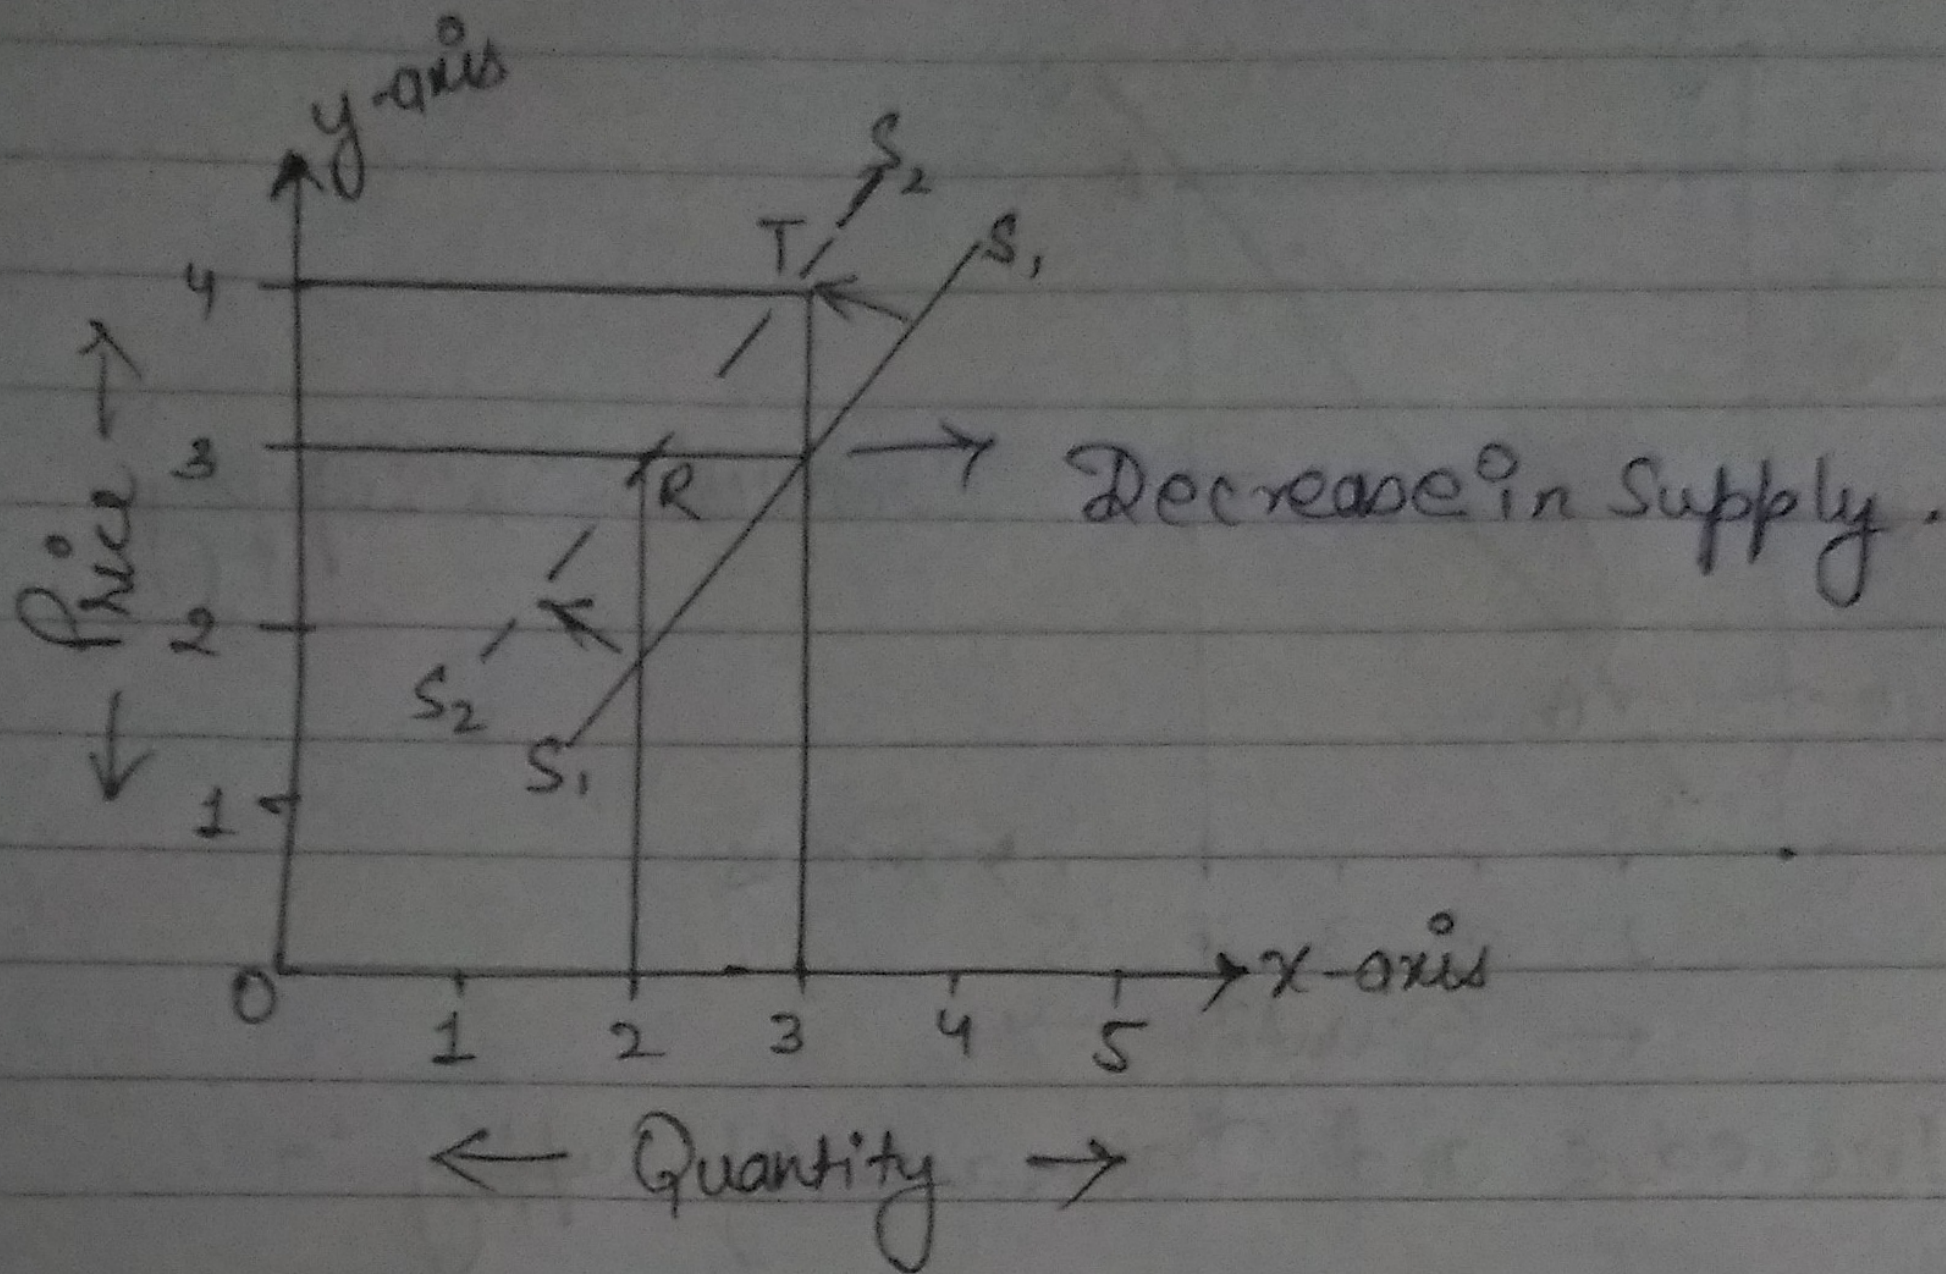 y-axis
S2
T
S1
4
3
R
Decrease in Supply.
Price
2
S2
S1
1
0
x-axis
1 2 3 4 5
Quantity